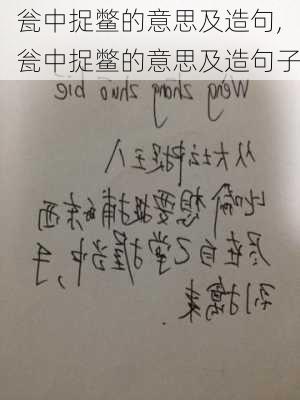 瓮中捉鳖的意思及造句,
瓮中捉鳖的意思及造句子
Weng zhong zhuo bie
从大坛中捉王八
比喻想要捉捕的东西
尽在自己掌握当中,手
到擒来.